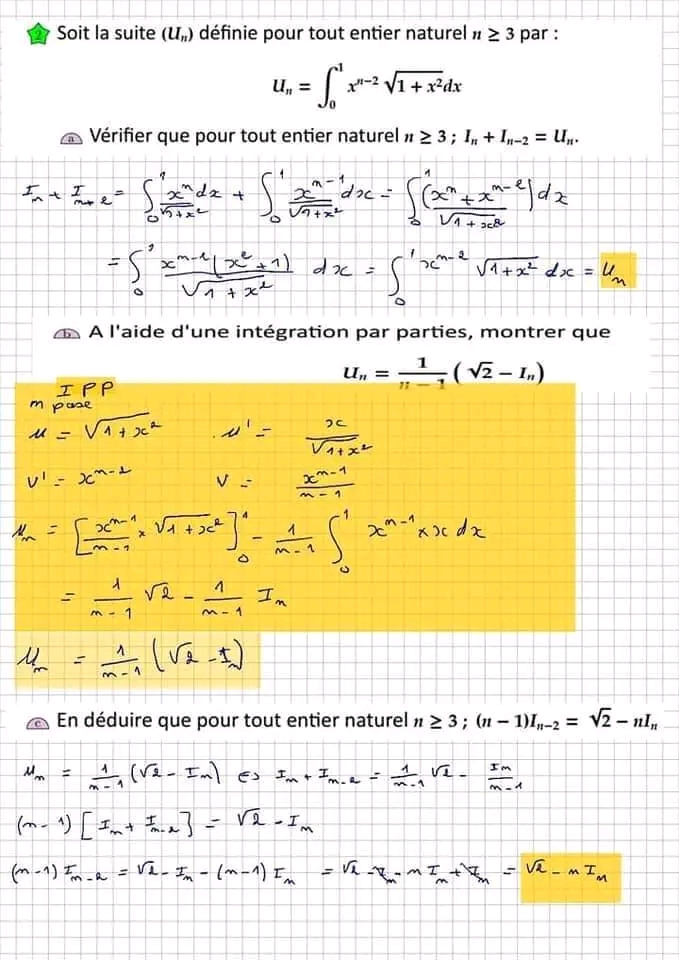 2 Soit la suite (Uₙ) définie pour tout entier naturel n ≥ 3 par :
Uₙ = ∫₀¹ xⁿ⁻² √(1 + x²) dx
a Vérifier que pour tout entier naturel n ≥ 3 ; Iₙ + Iₙ₋₂ = Uₙ.
Iₙ + Iₙ₊₂ = ∫₀¹ xⁿ/√(1+x²) dx + ∫₀¹ xⁿ⁻¹/√(1+x²) dx = ∫₀¹ (xⁿ + xⁿ⁻²)/√(1+x²) dx
= ∫₀¹ xⁿ⁻²(x² + 1)/√(1+x²) dx = ∫₀¹ xⁿ⁻² √(1+x²) dx = Uₙ
b A l'aide d'une intégration par parties, montrer que
Uₙ = 1/(n − 1) (√2 − Iₙ)
I P P
n pose
u = √(1+x²) . u' = x/√(1+x²)
v' = xⁿ⁻² v = xⁿ⁻¹/(n−1)
uₙ = [xⁿ⁻¹/(n−1) × √(1+x²)]₀¹ − 1/(n−1) ∫₀¹ xⁿ⁻¹ × x dx
= 1/(n−1) √2 − 1/(n−1) Iₙ
uₙ = 1/(n−1) (√2 − Iₙ)
c En déduire que pour tout entier naturel n ≥ 3 ; (n − 1)Iₙ₋₂ = √2 − nIₙ
uₙ = 1/(n−1) (√2 − Iₙ) ⇔ Iₙ + Iₙ₋₂ = 1/(n−1) √2 − Iₙ/(n−1)
(n−1) [Iₙ + Iₙ₋₂] = √2 − Iₙ
(n−1) Iₙ₋₂ = √2 − Iₙ − (n−1) Iₙ = √2 − Iₙ − n Iₙ + Iₙ = √2 − n Iₙ